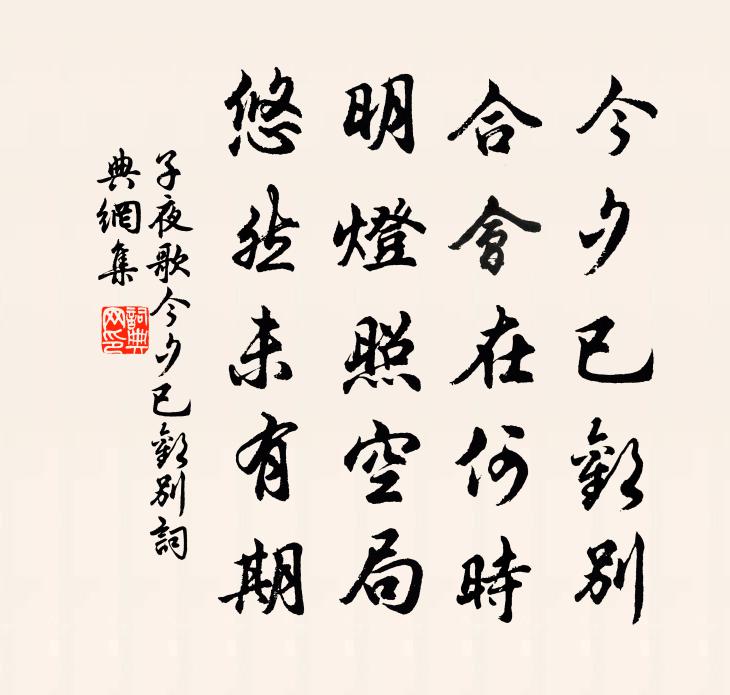 今夕已歡別
合會在何時
明燈照空局
悠然未有期
子夜歌今夕已歡別詞
典網集
詞典
网印